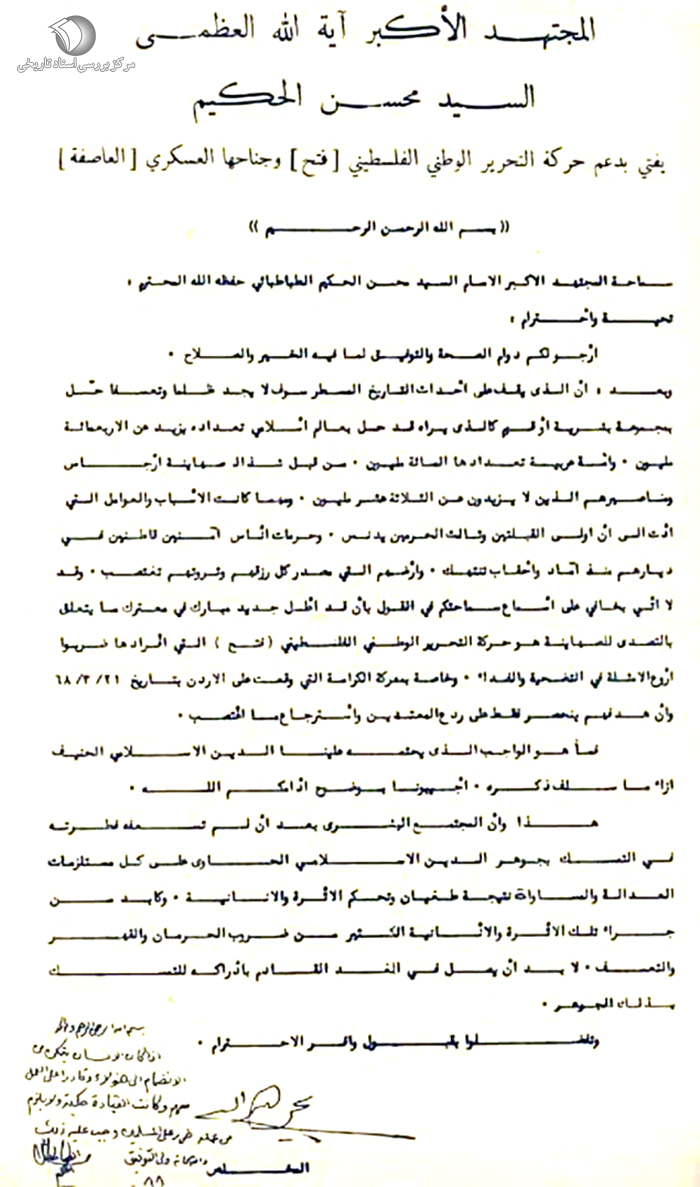 مرکز بررسی اسناد تاریخی
المجتهد الأكبر آية الله العظمى
السيد محسن الحكيم
يفتي بدعم حركة التحرير الوطني الفلسطيني [فتح] وجناحها العسكري [العاصفة]
(( بسم الله الرحمن الرحيم ))
سماحة المجتهد الاكبر الامام السيد محسن الحكيم الطباطبائي حفظه الله المحترم ،
تحية واحترام ،
أرجو لكم دوام الصحة والتوفيق لما فيه الخير والصلاح .
وبعد ، أن الذى يقف على أحداث التاريخ المسطر سوف لا يجد ظلما وتعسفا حل
بمجموعة بشرية أو قيم كالذى يراه قد حل بعالم اسلامي تعداده يزيد عن الاربعمائة
مليون . وأمة عربية تعدادها المائة مليون . من قبل شذاذ صهاينة أرجاس
ومناصريهم الذين لا يزيدون عن الثلاثة عشر مليون . ومهما كانت الأسباب والعوامل التي
أدت الى أن اولى القبلتين وثالث الحرمين يدنس . وحرمات أناس آمنين قاطنين في
ديارهم منذ آماد وأحقاب تنتهك . وأرضهم التي مصدر كل رزقهم وثروتهم تغتصب . وقد
لا أتي بخافي على أسماع سماحتكم في القول بأن قد أطل جديد مبارك في معترك ما يتعلق
بالتصدى للصهاينة هو حركة التحرير الوطني الفلسطيني ( فتح ) التي أفرادها ضربوا
أروع الامثلة في التضحية والفداء . وخاصة بمعركة الكرامة التي وقعت على الاردن بتاريخ ٦٨/٣/٢١
وأن هدفهم ينحصر فقط على ردع المعتدين وأسترجاع ما اغتصب .
فما هو الواجب الذى يحتمه علينا الدين الاسلامي الحنيف
ازاء ما سلف ذكره . أجيبونا بوضوح أدامكم الله .
هذا وأن المجتمع البشرى بعد أن لم تسعفه فطرته
في التمسك بجوهر الدين الاسلامي الحاوى على كل مستلزمات
العدالة والمساواة نتيجة طغيان وتحكم الاثرة والانانية . وكابد من
جراء تلك الاثرة والأنانية الكثير من ضروب الحرمان والقهر
والتعسف . لا بد أن يعمل في الغد القادم بأدراكه للتمسك
بذلك الجوهر .
وتفضلوا بقبول وافر الاحترام .
بسم الله الرحمن الرحيم وله الحمد
اذا كان الانسان يتمكن من
الانضمام الى هؤلاء وقادرا على العمل
معهم وكانت القيادة حكيمة ولا يلزم
من عمله ضرر على المسلمين وجب عليه ذلك
والله سبحانه ولي التوفيق
المخلص